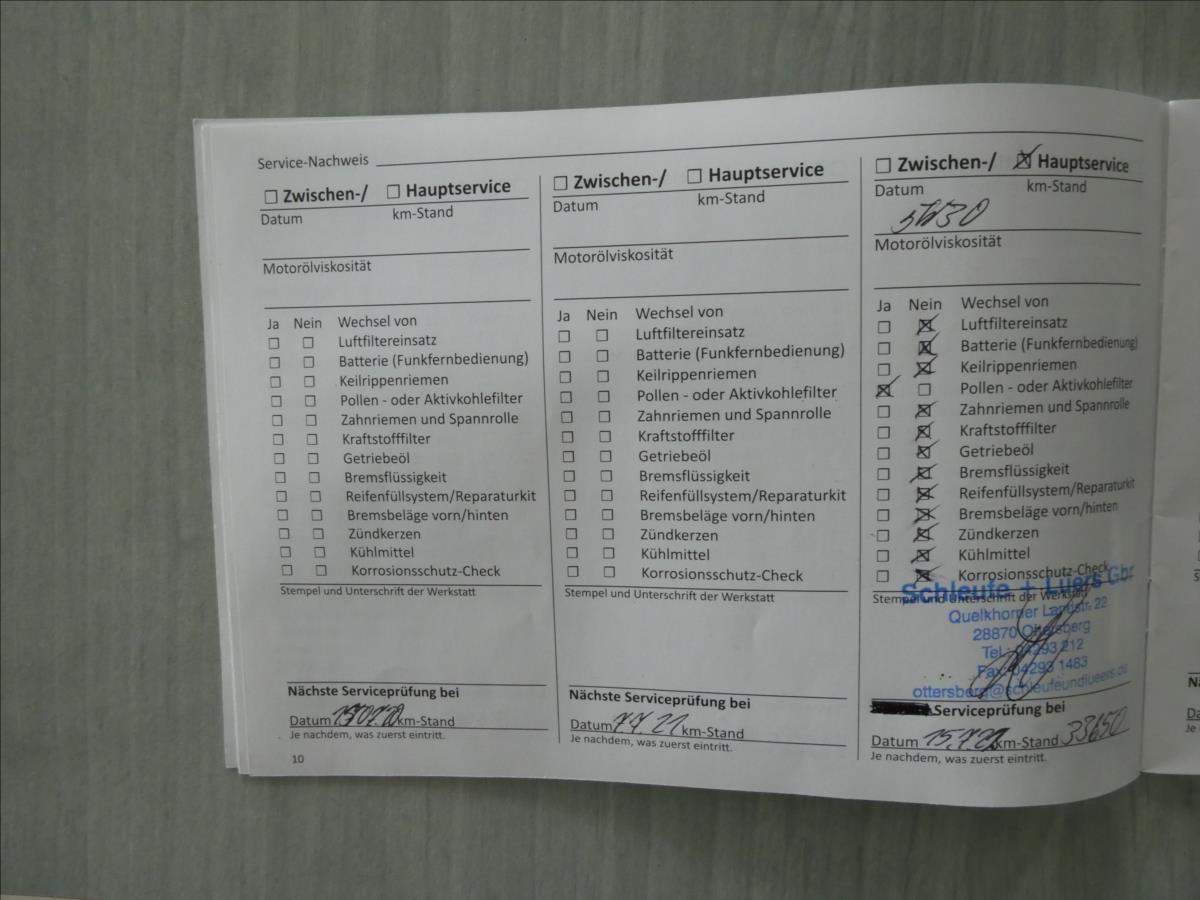 Service-Nachweis
☐ Zwischen-/ ☐ Hauptservice
Datum km-Stand
Motorölviskosität
Ja Nein Wechsel von
☐ ☐ Luftfiltereinsatz
☐ ☐ Batterie (Funkfernbedienung)
☐ ☐ Keilrippenriemen
☐ ☐ Pollen - oder Aktivkohlefilter
☐ ☐ Zahnriemen und Spannrolle
☐ ☐ Kraftstofffilter
☐ ☐ Getriebeöl
☐ ☐ Bremsflüssigkeit
☐ ☐ Reifenfüllsystem/Reparaturkit
☐ ☐ Bremsbeläge vorn/hinten
☐ ☐ Zündkerzen
☐ ☐ Kühlmittel
☐ ☐ Korrosionsschutz-Check
Stempel und Unterschrift der Werkstatt
Nächste Serviceprüfung bei
Datum km-Stand
Je nachdem, was zuerst eintritt.
10
☐ Zwischen-/ ☐ Hauptservice
Datum km-Stand
Motorölviskosität
Ja Nein Wechsel von
☐ ☐ Luftfiltereinsatz
☐ ☐ Batterie (Funkfernbedienung)
☐ ☐ Keilrippenriemen
☐ ☐ Pollen - oder Aktivkohlefilter
☐ ☐ Zahnriemen und Spannrolle
☐ ☐ Kraftstofffilter
☐ ☐ Getriebeöl
☐ ☐ Bremsflüssigkeit
☐ ☐ Reifenfüllsystem/Reparaturkit
☐ ☐ Bremsbeläge vorn/hinten
☐ ☐ Zündkerzen
☐ ☐ Kühlmittel
☐ ☐ Korrosionsschutz-Check
Stempel und Unterschrift der Werkstatt
Nächste Serviceprüfung bei
Datum km-Stand
Je nachdem, was zuerst eintritt.
☐ Zwischen-/ ☒ Hauptservice
Datum km-Stand
5W30
Motorölviskosität
Ja Nein Wechsel von
☐ ☒ Luftfiltereinsatz
☐ ☒ Batterie (Funkfernbedienung)
☐ ☒ Keilrippenriemen
☒ ☐ Pollen - oder Aktivkohlefilter
☐ ☒ Zahnriemen und Spannrolle
☐ ☒ Kraftstofffilter
☐ ☒ Getriebeöl
☐ ☒ Bremsflüssigkeit
☐ ☒ Reifenfüllsystem/Reparaturkit
☐ ☒ Bremsbeläge vorn/hinten
☐ ☒ Zündkerzen
☐ ☒ Kühlmittel
☐ ☒ Korrosionsschutz-Check
Schleufe + Lüers Gbr
Stempel und Unterschrift der Werkstatt
Quelkhorner Landstr. 22
28870 Ottersberg
Tel.: 04293 212
Fax: 04293 1483
ottersberg@schleufeundlueers.de
Serviceprüfung bei
Datum 15.7.22 km-Stand 33650
Je nachdem, was zuerst eintritt.